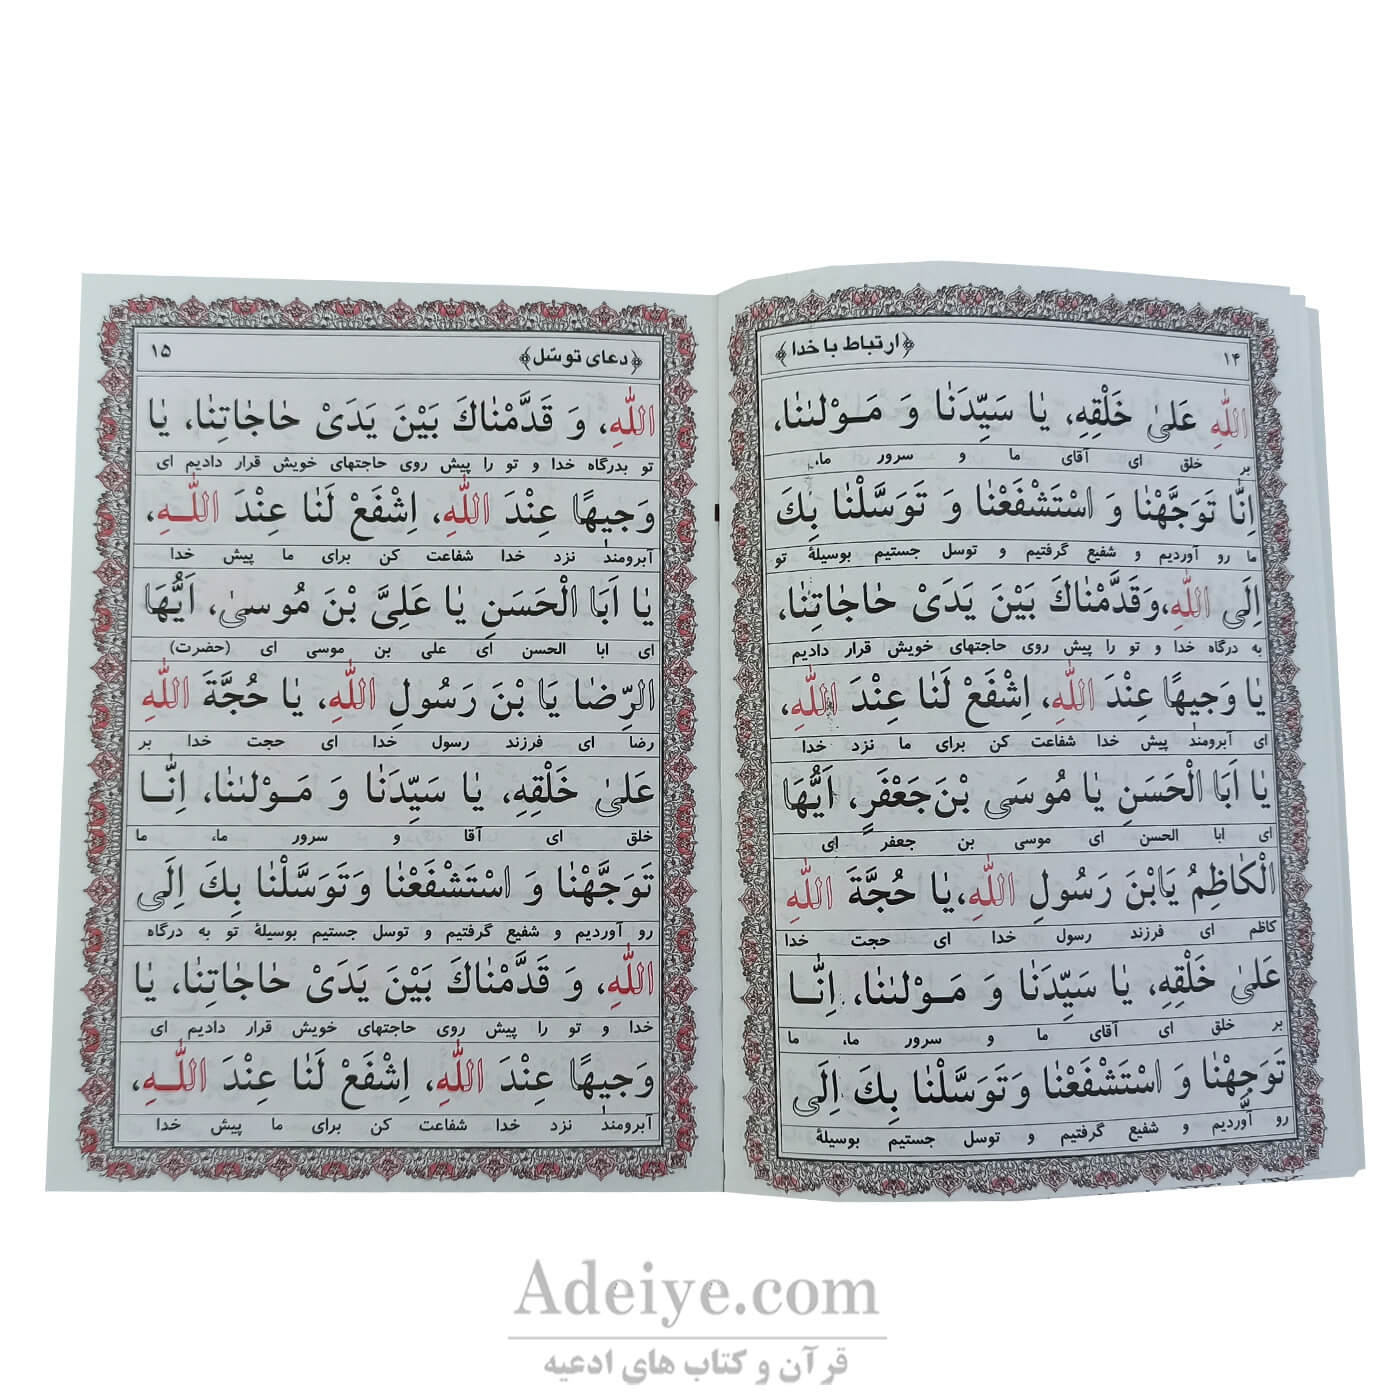 ۱۴ ﴿ارتباط با خدا﴾
اللّٰهِ عَلىٰ خَلْقِهِ، يٰا سَيِّدَنٰا وَ مَـوْلىٰنٰا،
بر خلق ای آقای ما و سرور ما،
اِنّٰا تَوَجَّهْنٰا وَ اسْتَشْفَعْنٰا وَ تَوَسَّلْنٰا بِكَ
ما رو آوردیم و شفیع گرفتیم و توسل جستیم بوسیلهٔ تو
اِلَى اللّٰهِ،وَقَدَّمْنٰاكَ بَيْنَ يَدَىْ حٰاجٰاتِنٰا،
به درگاه خدا و تو را پیش روی حاجتهای خویش قرار دادیم
يٰا وَجِيهًا عِنْدَ اللّٰهِ، اِشْفَعْ لَنٰا عِنْدَ اللّٰهِ،
ای آبرومند پیش خدا شفاعت کن برای ما نزد خدا
يٰا اَبَا الْحَسَنِ يٰا مُوسَى بْنَ جَعْفَرٍ، اَيُّهَا
ای ابا الحسن ای موسی بن جعفر ای
الْكٰاظِمُ يَابْنَ رَسُولِ اللّٰهِ،يٰا حُجَّةَ اللّٰهِ
کاظم ای فرزند رسول خدا ای حجت خدا
عَلىٰ خَلْقِهِ، يٰا سَيِّدَنٰا وَ مَـوْلىٰنٰا، اِنّٰـا
بر خلق ای آقای ما و سرور ما، ما
تَوَجَّهْنٰا وَ اسْتَشْفَعْنٰا وَتَوَسَّلْنٰا بِكَ اِلَى
رو آوردیم و شفیع گرفتیم و توسل جستیم بوسیلهٔ
﴿دعای توسّل﴾ ۱۵
اللّٰهِ، وَ قَدَّمْنٰاكَ بَيْنَ يَدَىْ حٰاجٰاتِنٰا، يٰا
تو بدرگاه خدا و تو را پیش روی حاجتهای خویش قرار دادیم ای
وَجِيهًا عِنْدَ اللّٰهِ، اِشْفَعْ لَنٰا عِنْدَ اللّٰـهِ،
آبرومند نزد خدا شفاعت کن برای ما پیش خدا
يٰا اَبَا الْحَسَنِ يٰا عَلِىَّ بْنَ مُوسىٰ، اَيُّهَا
ای ابا الحسن ای علی بن موسی ای (حضرت)
الرِّضٰا يَا بْنَ رَسُولِ اللّٰهِ، يٰا حُجَّةَ اللّٰهِ
رضا ای فرزند رسول خدا ای حجت خدا بر
عَلىٰ خَلْقِهِ، يٰا سَيِّدَنٰا وَ مَـوْلىٰنٰا، اِنّٰـا
خلق ای آقا و سرور ما، ما
تَوَجَّهْنٰا وَ اسْتَشْفَعْنٰا وَتَوَسَّلْنٰا بِكَ اِلَى
رو آوردیم و شفیع گرفتیم و توسل جستیم بوسیلهٔ تو به درگاه
اللّٰهِ، وَ قَدَّمْنٰاكَ بَيْنَ يَدَىْ حٰاجٰاتِنٰا، يٰا
خدا و تو را پیش روی حاجتهای خویش قرار دادیم ای
وَجِيهًا عِنْدَ اللّٰهِ، اِشْفَعْ لَنٰا عِنْدَ اللّٰـهِ،
آبرومند نزد خدا شفاعت کن برای ما پیش خدا
Adeiye.com
قرآن و کتاب های ادعیه